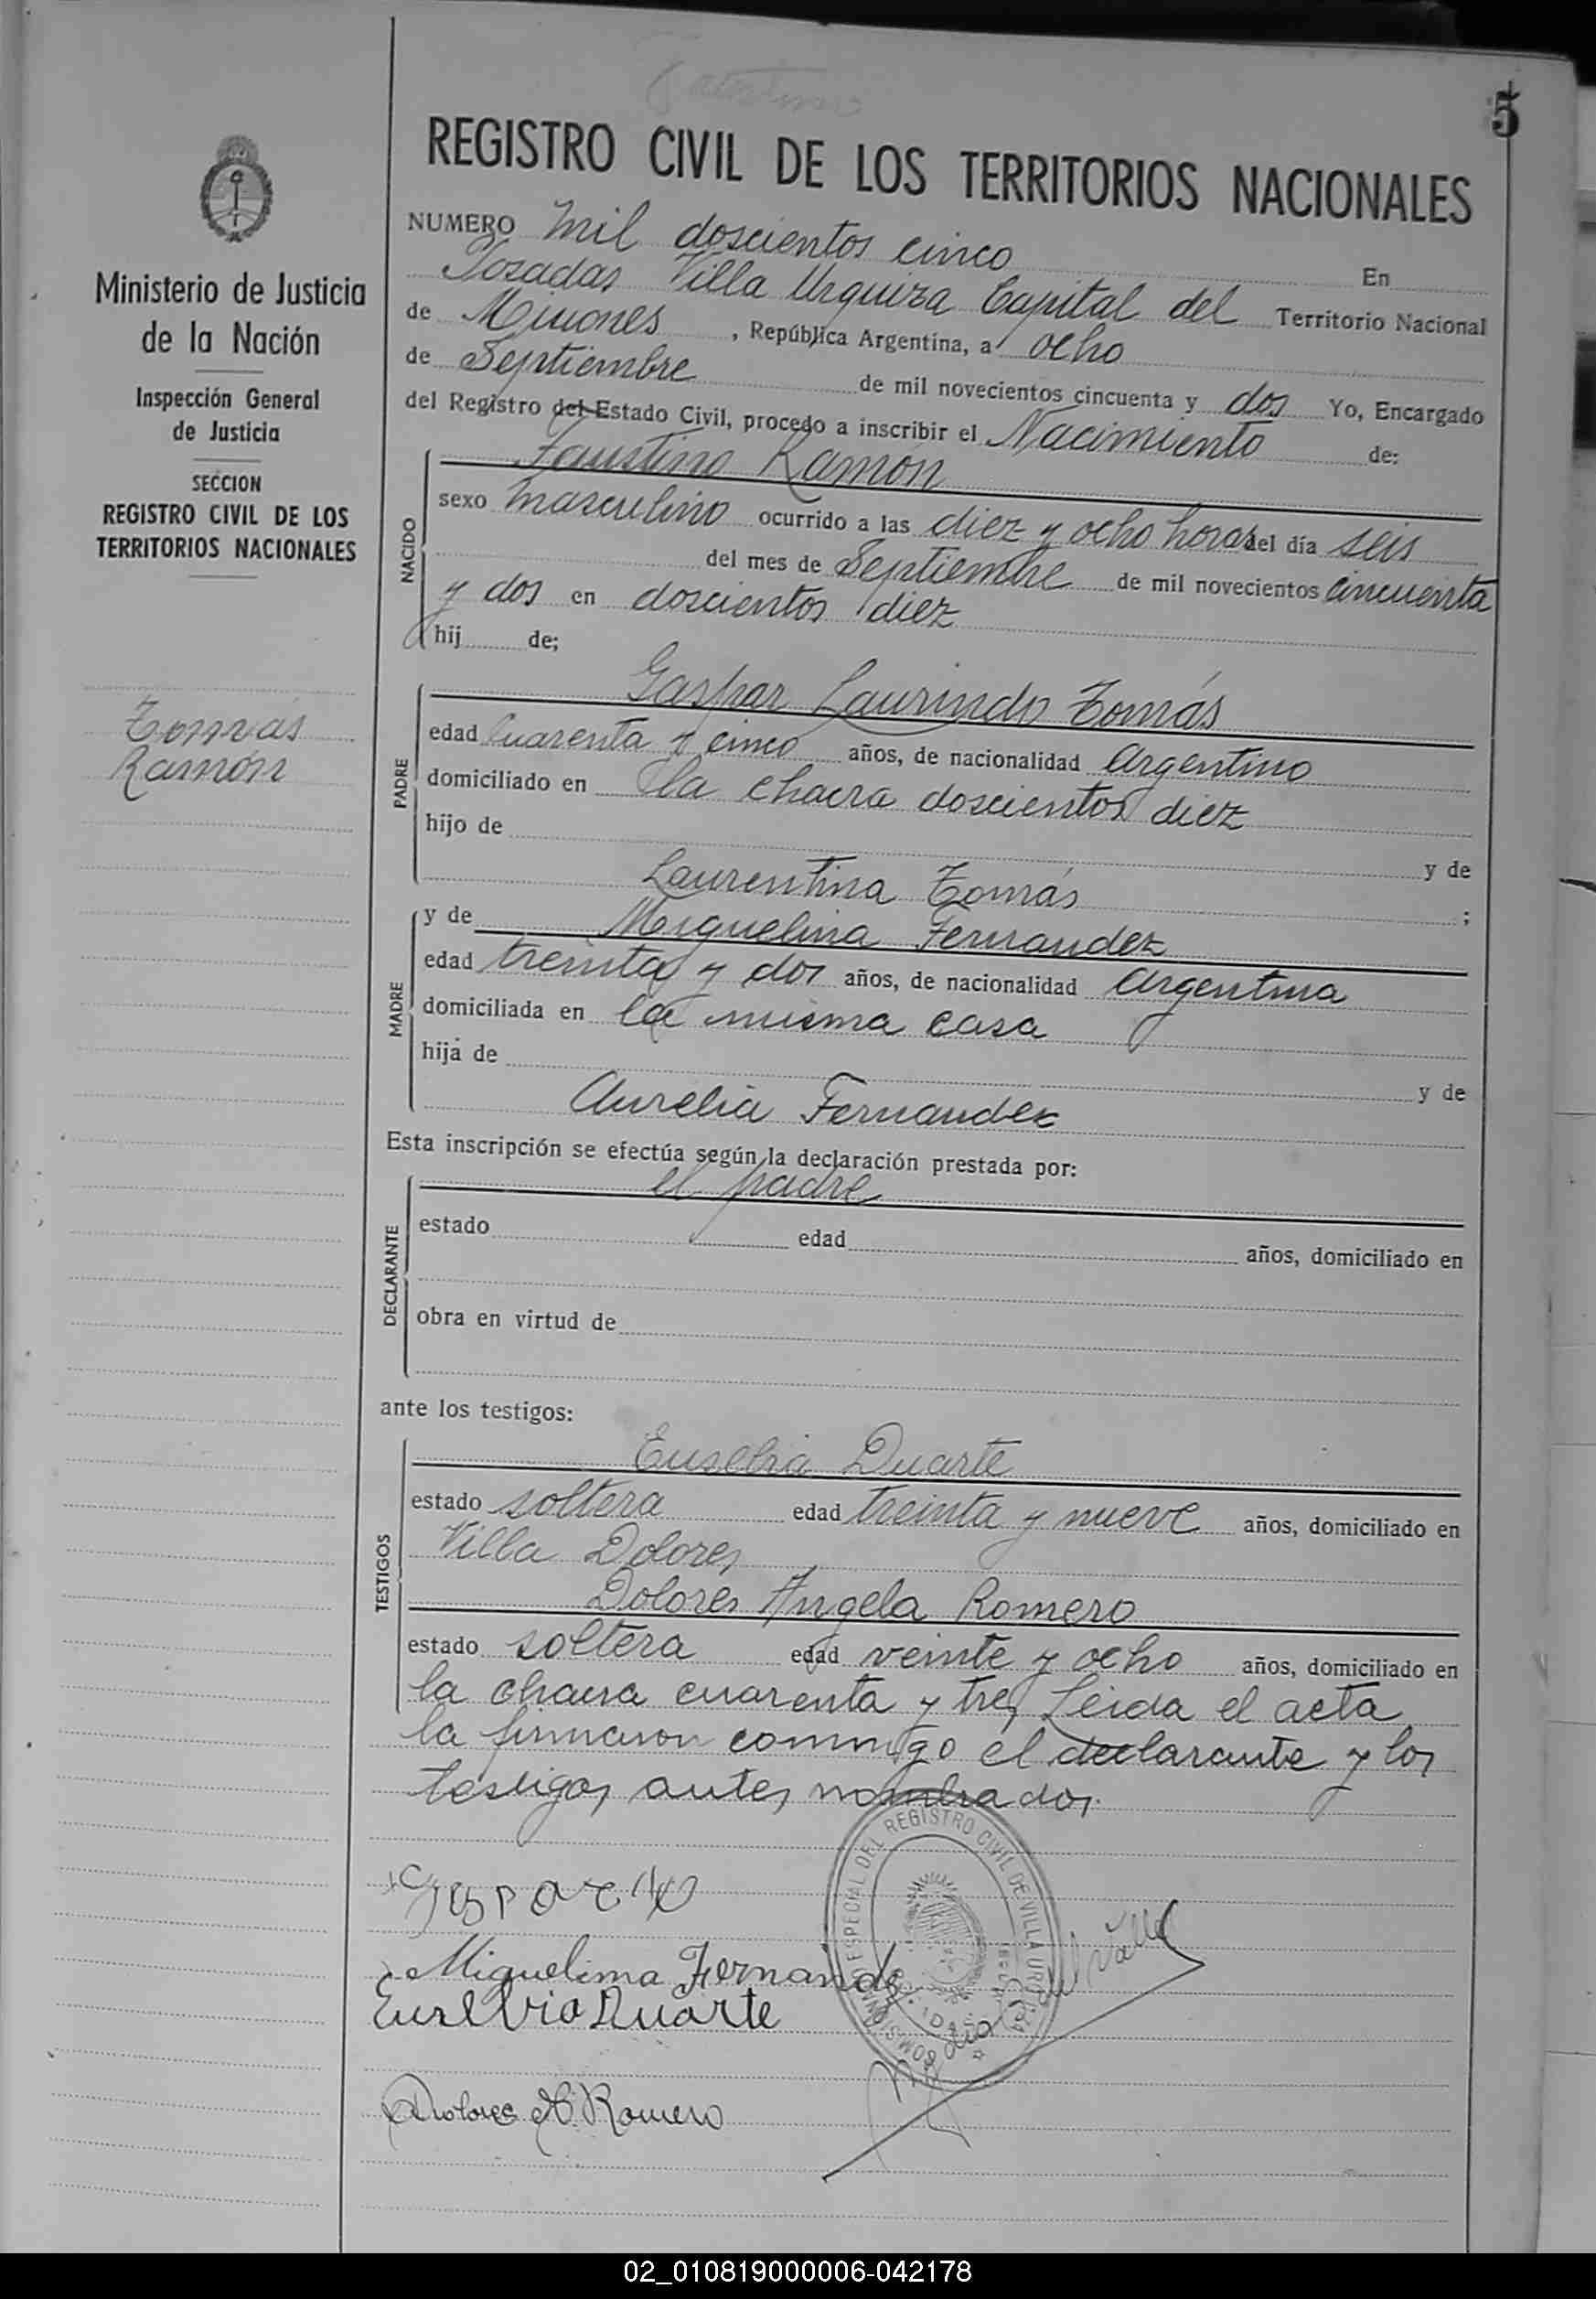 5
REGISTRO CIVIL DE LOS TERRITORIOS NACIONALES
Ministerio de Justicia
de la Nación
Inspección General
de Justicia
SECCION
REGISTRO CIVIL DE LOS
TERRITORIOS NACIONALES
Tomás
Ramón
NUMERO Mil doscientos cinco En
Posadas Villa Urquiza Capital del Territorio Nacional
de Misiones , República Argentina, a ocho
de Septiembre de mil novecientos cincuenta y dos Yo, Encargado
del Registro del Estado Civil, procedo a inscribir el Nacimiento de:
NACIDO
Faustino Ramón
sexo masculino ocurrido a las diez y ocho horas del día seis
del mes de Septiembre de mil novecientos cincuenta
y dos en doscientos diez
hij de;
PADRE
Gaspar Laurindo Tomás
edad cuarenta y cinco años, de nacionalidad Argentino
domiciliado en la chacra doscientos diez
hijo de y de
Laurentina Tomás ;
MADRE
y de Miguelina Fernandez
edad treinta y dos años, de nacionalidad Argentina
domiciliada en la misma casa
hija de y de
Aurelia Fernandez
Esta inscripción se efectúa según la declaración prestada por:
DECLARANTE
el padre
estado edad años, domiciliado en
obra en virtud de
ante los testigos:
TESTIGOS
Eusebia Duarte
estado soltera edad treinta y nueve años, domiciliado en
Villa Dolores
Dolores Angela Romero
estado soltera edad veinte y ocho años, domiciliado en
la chacra cuarenta y tres Leida el acta
la firmaron conmigo el declarante y los
testigos antes nombrados.
Miguelima Fernández
Eusevia Duarte
Dolores A. Romero
REGISTRO CIVIL DE VILLA URQUIZA
02_010819000006-042178